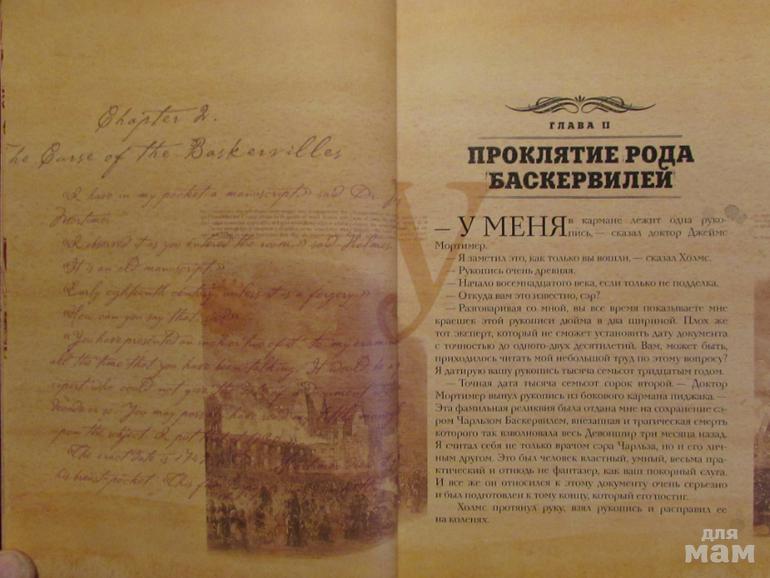 Chapter 2.
The Curse of the Baskervilles
«I have in my pocket a manuscript» said Dr.
Mortimer
«I observed it as you entered the room» said Holmes
«It is an old manuscript.»
«Early eighteenth century, unless it is a forgery.»
«How can you say that
«You have presented an inch or two of it to my
all the time that you have been talking. It would be a
expert who could not give the date of document
decade or so. You may
upon the subject. I put
«The exact date is
his breast-pocket. «This
ГЛАВА II
ПРОКЛЯТИЕ РОДА
БАСКЕРВИЛЕЙ
— У МЕНЯ в кармане лежит одна руко-
пись, — сказал доктор Джеймс
Мортимер.
— Я заметил это, как только вы вошли, — сказал Холмс.
— Рукопись очень древняя.
— Начало восемнадцатого века, если только не подделка.
— Откуда вам это известно, сэр?
— Разговаривая со мной, вы все время показываете мне
краешек этой рукописи дюйма в два шириной. Плох же
тот эксперт, который не сможет установить дату документа
с точностью до одного-двух десятилетий. Вам, может быть,
приходилось читать мой небольшой труд по этому вопросу?
Я датирую вашу рукопись тысяча семьсот тридцатым годом.
— Точная дата тысяча семьсот сорок второй. — Доктор
Мортимер вынул рукопись из бокового кармана пиджака. —
Эта фамильная реликвия была отдана мне на сохранение сэ-
ром Чарльзом Баскервилем, внезапная и трагическая смерть
которого так взволновала весь Девоншир три месяца назад.
Я считал себя не только врачом сэра Чарльза, но и его лич-
ным другом. Это был человек властный, умный, весьма пра-
ктический и отнюдь не фантазер, как ваш покорный слуга.
И все же он относился к этому документу очень серьезно
и был подготовлен к тому концу, который его постиг.
Холмс протянул руку, взял рукопись и расправил ее
на коленях.
для
мам